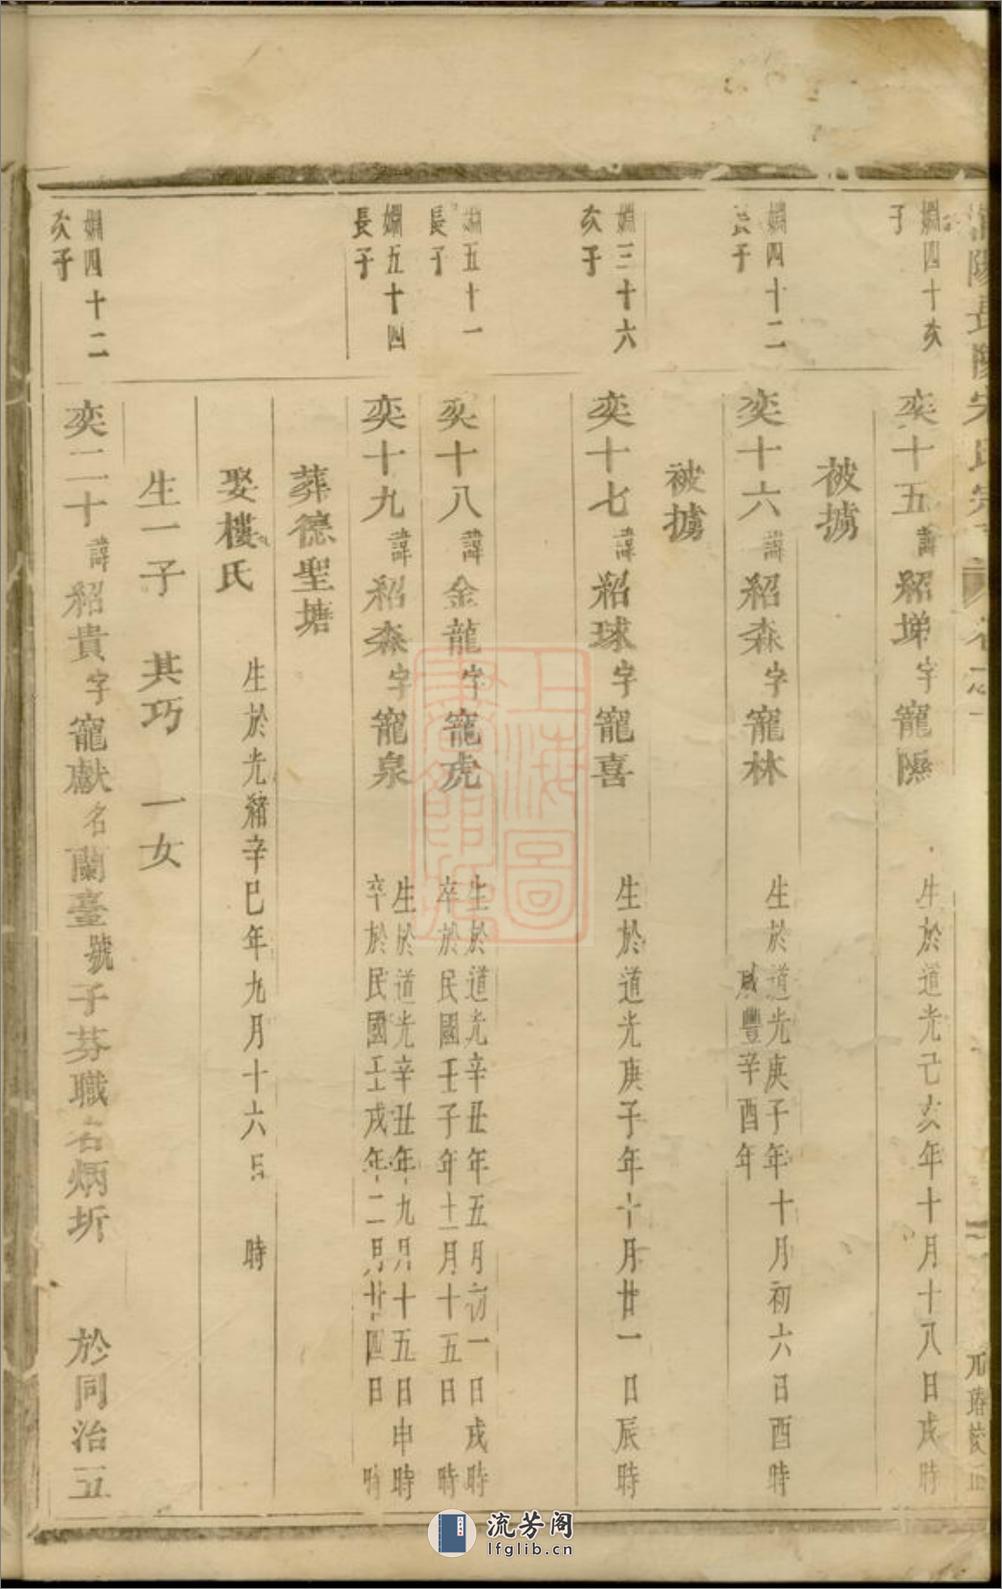 嫻四十次
子
奕十五諱紹埽字寵隰
生於道光己亥年十月十八日戌時
被擄
嫻四十二
長子
奕十六諱紹森字寵林
生於道光庚子年十月初六日酉時
咸豐辛酉年
被擄
嫻三十六
次子
奕十七諱紹球字寵喜
生於道光庚子年十月廿一日辰時
嫻五十一
長子
奕十八諱金龍字寵虎
生於道光辛丑年五月初一日戌時
卒於民國壬子年十一月十五日 時
嫻五十四
長子
奕十九諱紹森字寵泉
生於道光辛丑年九月十五日申時
卒於民國壬戌年十二月廿四日 時
葬德聖塘
娶樓氏 生於光緒辛巳年九月十六日 時
生一子 其巧 一女
嫻四十二
次子
奕二十諱紹貴字寵獻名蘭臺號子芬職名炳圻 於同治五
上海圖
流芳阁
lfglib.cn